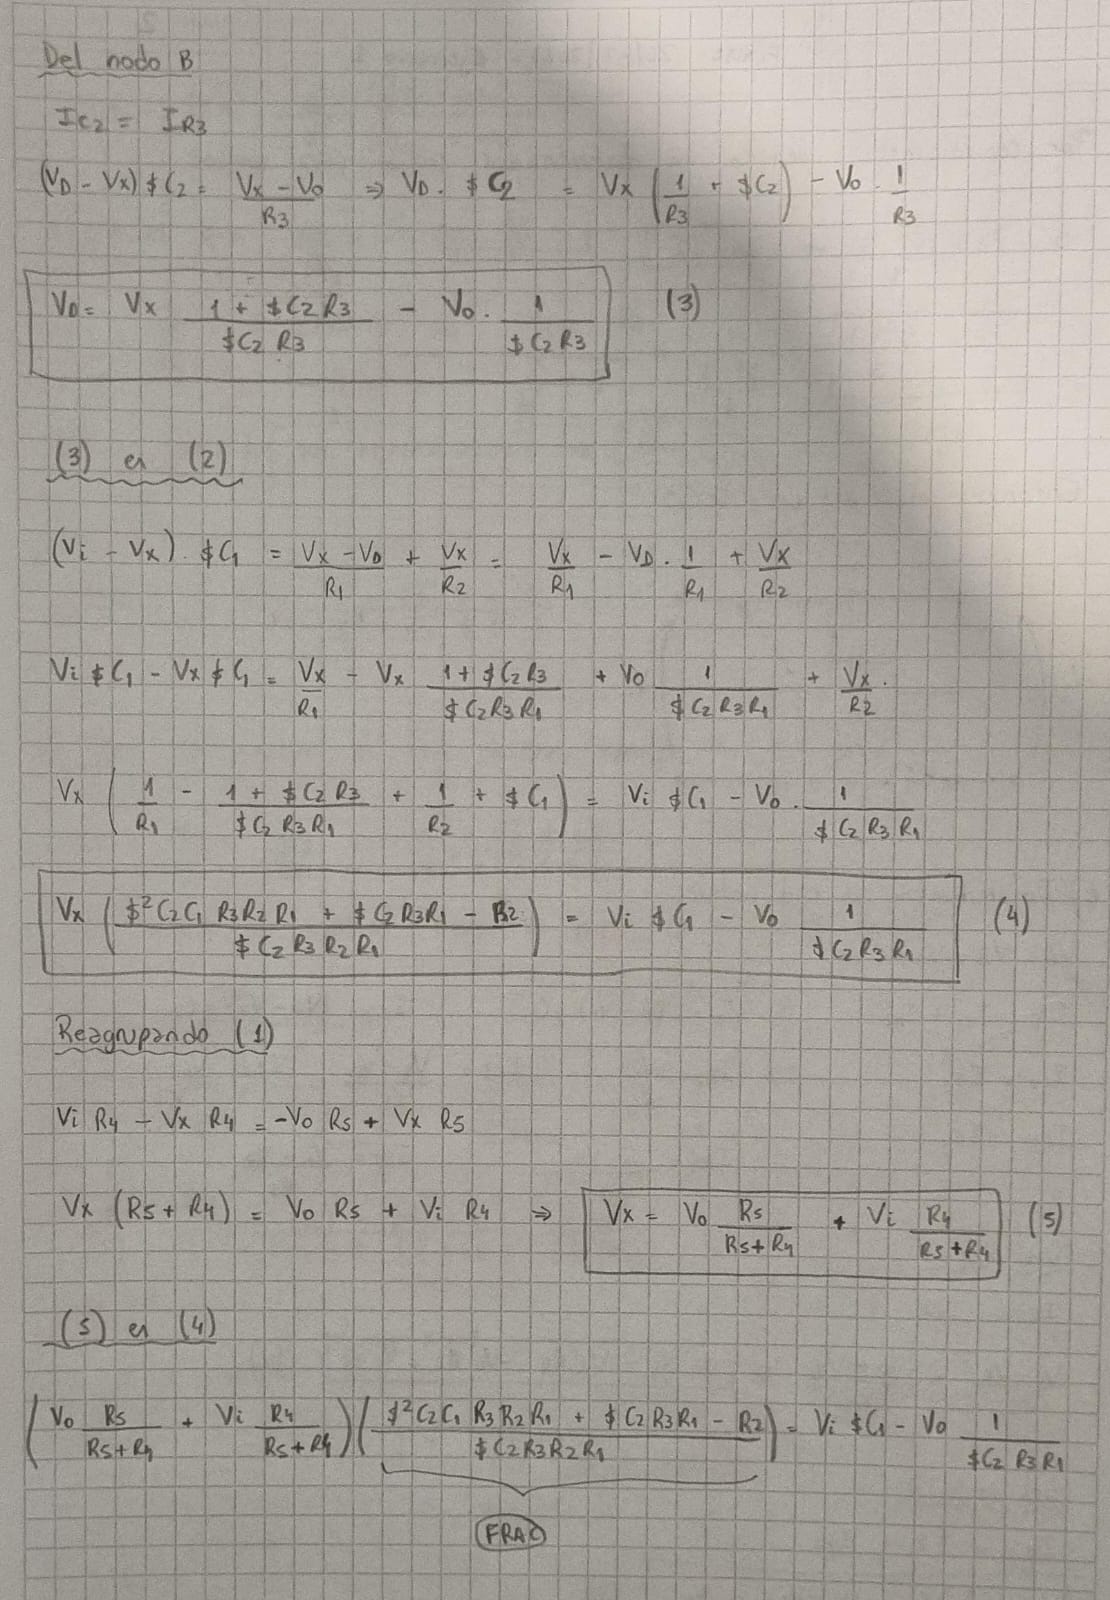 Del nodo B
IC2 = IR3
(VD - Vx) $C2 = (Vx - Vo)/R3 ⇒ VD . $C2 = Vx (1/R3 + $C2) - Vo . 1/R3
VD = Vx (1 + $C2 R3)/($C2 R3) - Vo . 1/($C2 R3) (3)
(3) en (2)
(Vi - Vx) . $C1 = (Vx - VD)/R1 + Vx/R2 = Vx/R1 - VD . 1/R1 + Vx/R2
Vi $C1 - Vx $C1 = Vx/R1 - Vx (1 + $C2R3)/($C2R3R1) + Vo 1/($C2R3R1) + Vx/R2 .
Vx (1/R1 - (1 + $C2 R3)/($C2 R3 R1) + 1/R2 + $C1) = Vi $C1 - Vo . 1/($C2 R3 R1)
Vx (($² C2C1 R3R2 R1 + $C2R3R1 - R2)/($C2 R3 R2 R1)) = Vi $C1 - Vo 1/($C2R3R1) (4)
Reagrupando (1)
Vi R4 - Vx R4 = -Vo R5 + Vx R5
Vx (R5 + R4) = Vo R5 + Vi R4 ⇒ Vx = Vo R5/(R5+R4) + Vi R4/(R5+R4) (5)
(5) en (4)
(Vo R5/(R5+R4) + Vi R4/(R5+R4)) (($² C2C1 R3R2R1 + $C2R3R1 - R2)/($C2R3R2R1)) = Vi $C1 - Vo 1/($C2 R3R1)
FRAC